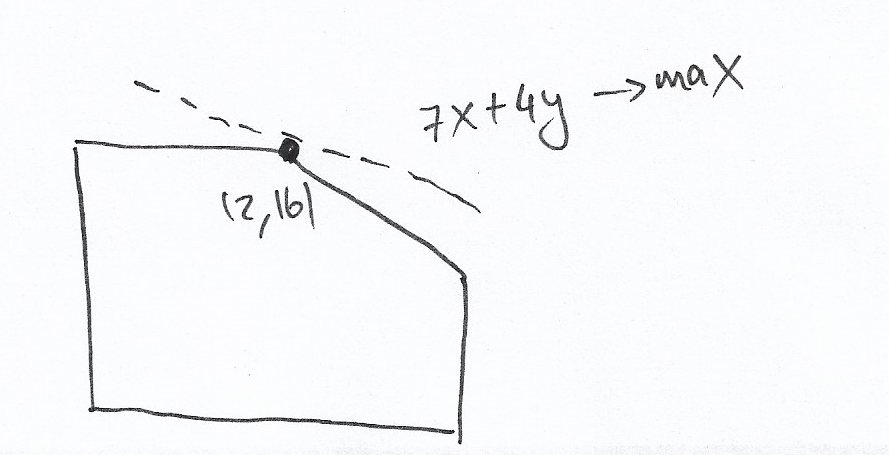 7x+4y → max
(2,16)